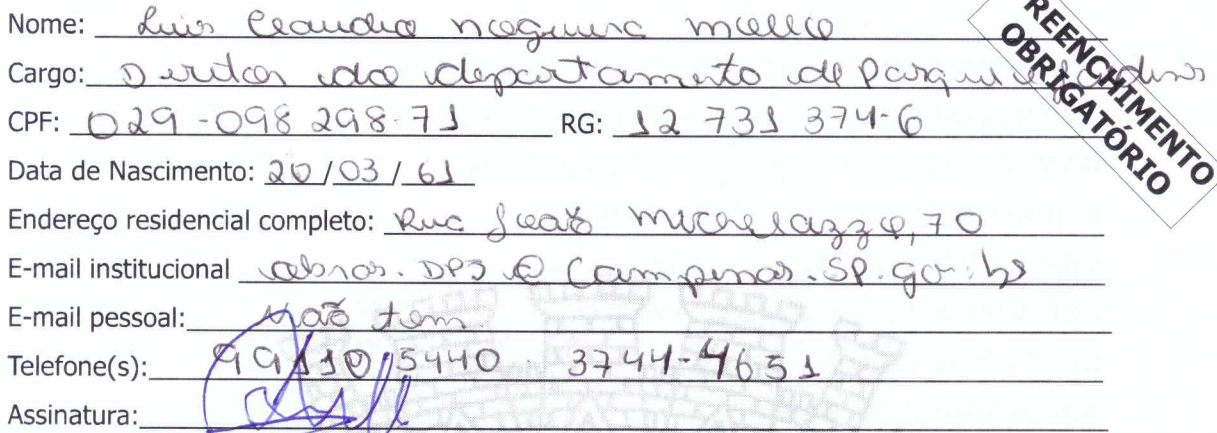 Nome: Luis Claudio nogueira mello
Cargo: Diretor do departamento de Parques e Jardins
PREENCHIMENTO
OBRIGATÓRIO
CPF: 029-098 298-71 RG: 12 731 374-6
Data de Nascimento: 20/03/61
Endereço residencial completo: Rua João michelazzo, 70
E-mail institucional DPJ @ Campinas.SP.gov.br
E-mail pessoal: não tem.
Telefone(s): 99110 5440 3744-4651
Assinatura: